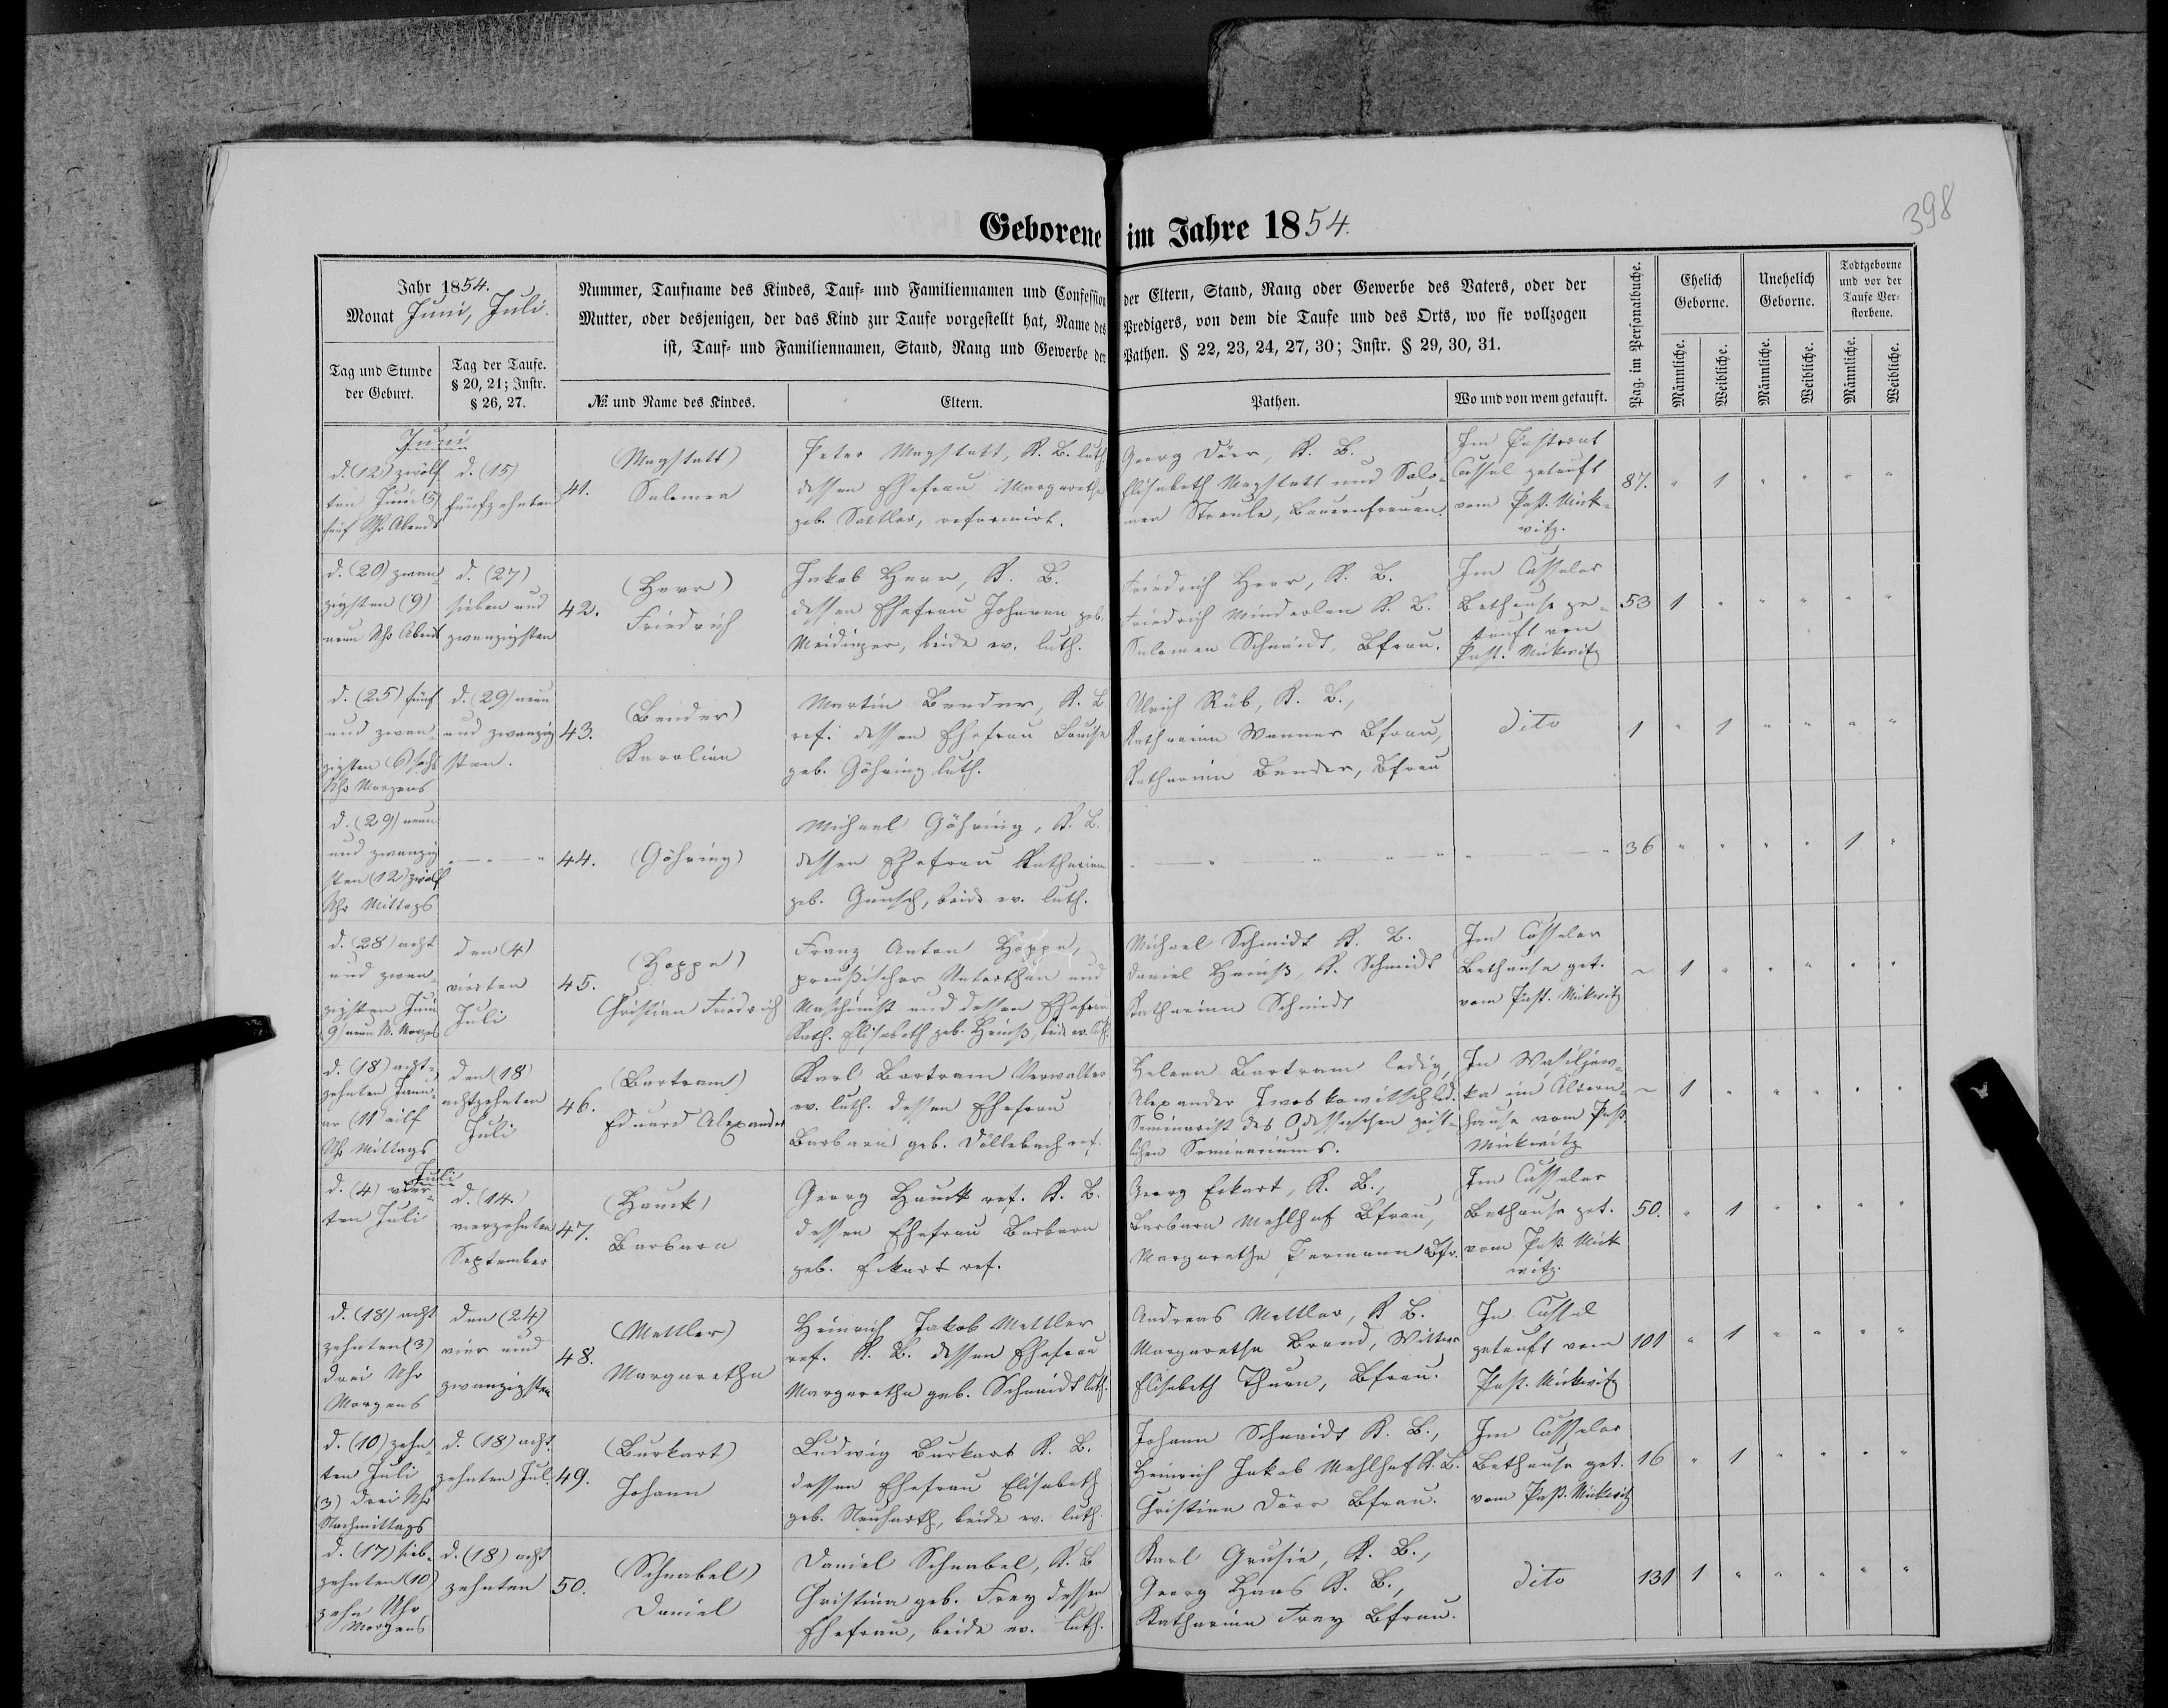 398
Geborene im Jahre 1854.
Jahr 1854.
Monat Juni, Juli.
Tag und Stunde
der Geburt.
Tag der Taufe.
§ 20, 21; Instr.
§ 26, 27.
Nummer, Taufname des Kindes, Tauf- und Familiennamen und Confession der Eltern, Stand, Rang oder Gewerbe des Vaters, oder der
Mutter, oder desjenigen, der das Kind zur Taufe vorgestellt hat, Name des Predigers, von dem die Taufe und des Orts, wo sie vollzogen
ist, Tauf- und Familiennamen, Stand, Rang und Gewerbe der Pathen. § 22, 23, 24, 27, 30; Instr. § 29, 30, 31.
№ und Name des Kindes.
Eltern.
Pathen.
Wo und von wem getauft.
Pag. im Personalbuche.
Ehelich
Geborne.
Unehelich
Geborne.
Todtgeborne
und vor der
Taufe Ver-
storbene.
Männliche.
Weibliche.
Männliche.
Weibliche.
Männliche.
Weibliche.
Juni
d. (12) zwölf
ten Juni (5)
fünf Uhr Abends
d. (15)
fünfzehnten
41.
(Magstatt)
Salomea
Peter Magstatt, K. B. luth.
dessen Ehefrau Margaretha
geb. Sattler, reformirt.
Georg Dörr, K. B.
Elisabeth Magstatt und Salo-
mea Streule, Bauernfrauen.
Im Pastorat
Cassel getauft
vom Past. Mick-
witz.
87. " 1 " " " "
d. (20) zwan
zigsten (9)
neun Uhr Abends
d. (27)
sieben und
zwanzigsten
42.
(Herr)
Friedrich
Jakob Herr, K. B.
dessen Ehefrau Johanna geb.
Meidinger, beide ev. luth.
Friedrich Herr, K. B.
Friedrich Minderlen K. B.
Salomea Schmidt, Bfrau.
Im Casseler
Bethause ge-
tauft von
Past. Mickwitz
53 1 " " " " "
d. (25) fünf
und zwan
zigsten (6) sechs
Uhr Morgens
d. (29) neun
und zwanzig
sten.
43.
(Bender)
Karolina
Martin Bender, K. B.
ref. dessen Ehefrau Louise
geb. Göhring luth.
Ulrich Rüb, K. B.,
Katharina Wanner Bfrau,
Katharina Bender, Bfrau
dito
1 " 1 " " " "
d. (29) neun
und zwanzig
sten (12) zwölf
Uhr Mittags
" — " — "
44.
(Göhring)
Michael Göhring, K. B.
dessen Ehefrau Katharina
geb. Gunsch, beide ev. luth.
" — " — " — " — "
36 " " " " 1 "
d. (28) acht
und zwan-
zigsten Juni
9) neun U. Morgens
den (4)
vierten
Juli
45.
(Hoppe)
Christian Friedrich
Franz Anton Hoppe,
preußischer Unterthan und
Maschinist und dessen Ehefrau
Kath. Elisabeth geb. Heinß, beide ev. luth.
Michael Schmidt K. B.
Daniel Heinß, K. Schmidt
Katharina Schmidt
Im Casseler
Bethause get.
vom Past. Mickwitz
~ 1 " " " " "
d. (18) acht-
zehnten Janu-
ar (11) eilf
Uhr Mittags
den (18)
achtzehnten
Juli
46.
(Bartram)
Eduard Alexander
Karl Bartram Verwalter
ev. luth. dessen Ehefrau
Barbara geb. Döllebach ref.
Helena Bartram ledig,
Alexander Iwoskowitsch led.
Seminarist des Odessaschen geist-
lichen Seminariums.
In Wasiljew-
ka im Altern-
hause vom Past.
Mickwitz
~ 1 " " " " "
Juli
d. (4) vier-
ten Juli
d. (14)
vierzehnten
September
47.
(Hauck)
Barbara
Georg Hauck ref. K. B.
dessen Ehefrau Barbara
geb. Eckart ref.
Georg Eckart, K. B.,
Barbara Mehlhaf Bfrau,
Margaretha Bfr.
Im Casseler
Bethause get.
vom Past. Mick
witz.
50. " 1 " " " "
d. (18) acht
zehnten (3)
drei Uhr
Morgens
den (24)
vier und
zwanzigsten
48.
(Mettler)
Margaretha
Heinrich Jakob Mettler
ref. K. B. dessen Ehefrau
Margaretha geb. Schmidt luth.
Andreas Mettler, K. B.
Margaretha Brand, Wittwe
Elisabeth Thurn, Bfrau.
In Cassel
getauft vom
Past. Mickwitz
101 " 1 " " " "
d. (10) zehn-
ten Juli
(3) drei Uhr
Nachmittags
d. (18) acht
zehnten Jul.
49.
(Burkart)
Johann
Ludwig Burkart K. B.
dessen Ehefrau Elisabeth
geb. Neuharth, beide ev. luth.
Johann Schmidt K. B.,
Heinrich Jakob Mehlhaf K. B.
Christina Dörr Bfrau.
Im Casseler
Bethause get.
vom Past. Mickwitz
16 " 1 " " " "
d. (17) sieb-
zehnten (10)
zehn Uhr
Morgens
d. (18) acht
zehnten
50.
(Schnabel)
Daniel
Daniel Schnabel, K. B
Christina geb. Frey dessen
Ehefrau, beide ev. luth.
Karl Grusie, K. B.,
Georg Haas K. B.,
Katharina Frey Bfrau.
dito
131 1 " " " " "